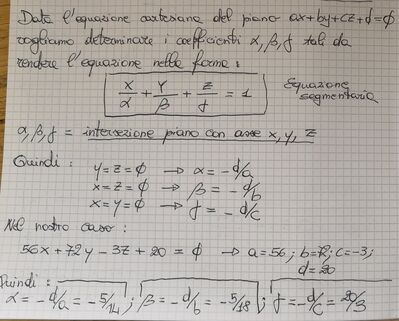 Data l'equazione cartesiana del piano ax+by+cz+d=φ
vogliamo determinare i coefficienti α, β, γ tali da
rendere l'equazione nella forma:
x/α + y/β + z/γ = 1 Equazione segmentaria
α, β, γ = intersezione piano con asse x, y, z
Quindi: y=z=φ → α = -d/a
x=z=φ → β = -d/b
x=y=φ → γ = -d/c
Nel nostro caso:
56x+72y-3z+20=φ → a=56; b=72; c=-3;
d=20
Quindi:
α = -d/a = -5/14; β = -d/b = -5/18; γ = -d/c = 20/3